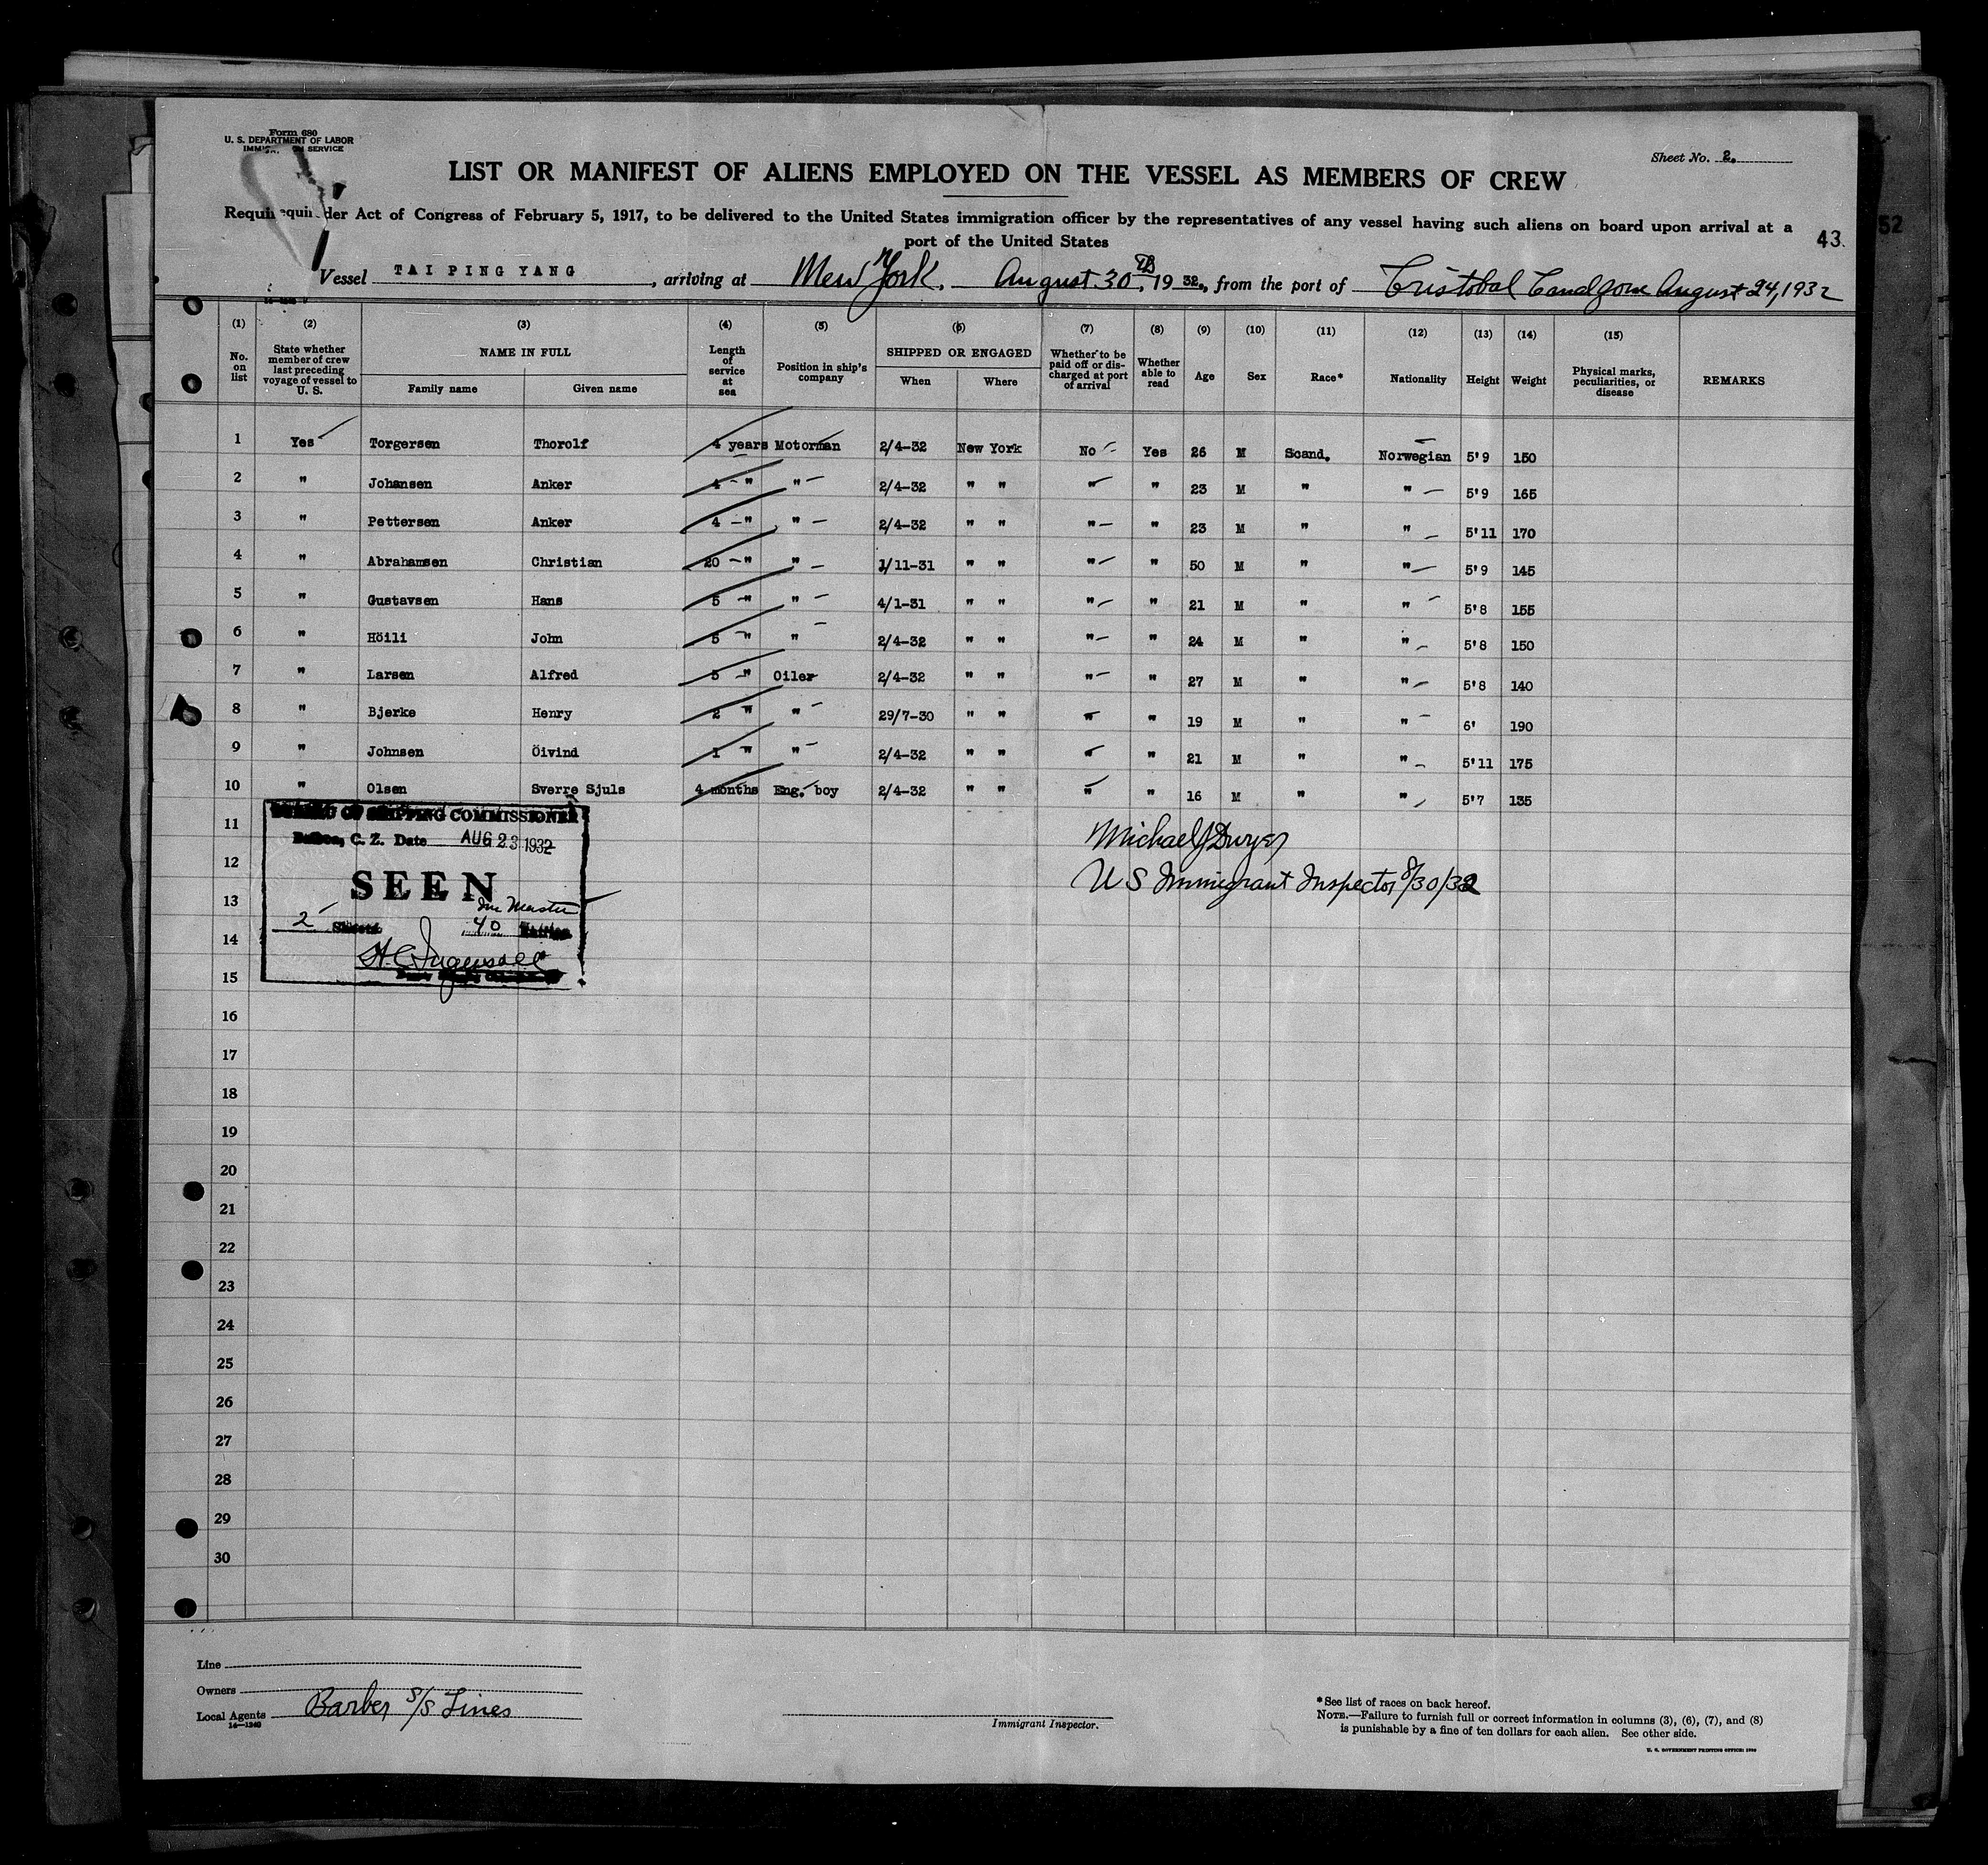 Form 680
U. S. DEPARTMENT OF LABOR
SERVICE
Sheet No. 2.
LIST OR MANIFEST OF ALIENS EMPLOYED ON THE VESSEL AS MEMBERS OF CREW
der Act of Congress of February 5, 1917, to be delivered to the United States immigration officer by the representatives of any vessel having such aliens on board upon arrival at a
port of the United States
43.
52
Vessel TAI PING YANG, arriving at New York. August 30th, 1932., from the port of Cristobal Canal Zone August 24, 1932
(1) (2) (3) (4) (5) (6) (7) (8) (9) (10) (11) (12) (13) (14) (15)
No. on list
State whether member of crew last preceding voyage of vessel to U. S.
NAME IN FULL
Family name Given name
Length of service at sea
Position in ship's company
SHIPPED OR ENGAGED
When Where
Whether to be paid off or discharged at port of arrival
Whether able to read
Age Sex Race* Nationality Height Weight
Physical marks, peculiarities, or disease
REMARKS
1 Yes Torgersen Thorolf 4 years Motorman 2/4-32 New York No Yes 26 M Scand. Norwegian 5'9 150
2 " Johansen Anker 4 - " " 2/4-32 " " " " 23 M " " 5'9 165
3 " Pettersen Anker 4 - " " 2/4-32 " " " " 23 M " " 5'11 170
4 " Abrahamsen Christian 20 - " " 1/11-31 " " " " 50 M " " 5'9 145
5 " Gustavsen Hans 5 - " " 4/1-31 " " " " 21 M " " 5'8 155
6 " Höili John 5 - " " 2/4-32 " " " " 24 M " " 5'8 150
7 " Larsen Alfred 5 - " Oiler 2/4-32 " " " " 27 M " " 5'8 140
8 " Bjerke Henry 2 " " 29/7-30 " " " " 19 M " " 6' 190
9 " Johnsen Öivind 1 " " 2/4-32 " " " " 21 M " " 5'11 175
10 " Olsen Sverre Sjuls 4 months Eng. boy 2/4-32 " " " " 16 M " " 5'7 135
11
12
13
14
15
16
17
18
19
20
21
22
23
24
25
26
27
28
29
30
SHIPPING COMMISSIONER
Balboa, C. Z. Date AUG 23 1932
SEEN
Inc Master
2 Sheets 40
Michael J Dwyer
U S Immigrant Inspector 8/30/32
Line
Owners
Local Agents Barber S/S Lines
14—1240
Immigrant Inspector.
*See list of races on back hereof.
NOTE.—Failure to furnish full or correct information in columns (3), (6), (7), and (8)
is punishable by a fine of ten dollars for each alien. See other side.
U. S. GOVERNMENT PRINTING OFFICE: